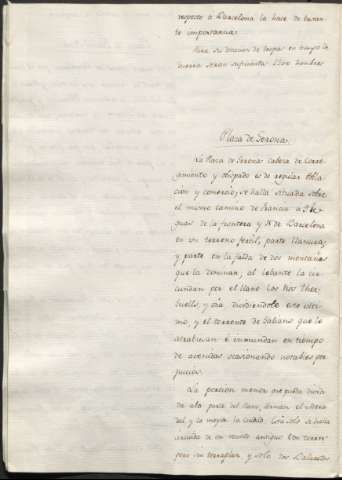 respeto a Barcelona la hace de bastante importancia.
Para su dotacion de tropas en tiempo de
guerra seran suficientes 1500 hombres

Plaza de Gerona.
La Plaza de Gerona cabeza de Corregimiento
y obispado es de regular Poblacion
y comercio; se halla situada sobre
el mismo camino de Francia a 9 leguas
de la frontera y de Barcelona
en un terreno fertil, parte llanura,
y parte en la falda de dos montañas
que la dominan; al levante la circundan
por el llano los Rios Ther
y Oña dividiendole este ultimo,
y el torrente de Galians que le
atrabiesan e inundan en tiempo
de avenidas ocasionando notables perjuicios.
La porcion menor
de esta parte del llano, llaman el Mercadal
y la mayor la ciudad. Esta solo se halla
de un recinto antiguo con torreones
sin terraplen y solo dos Baluartes